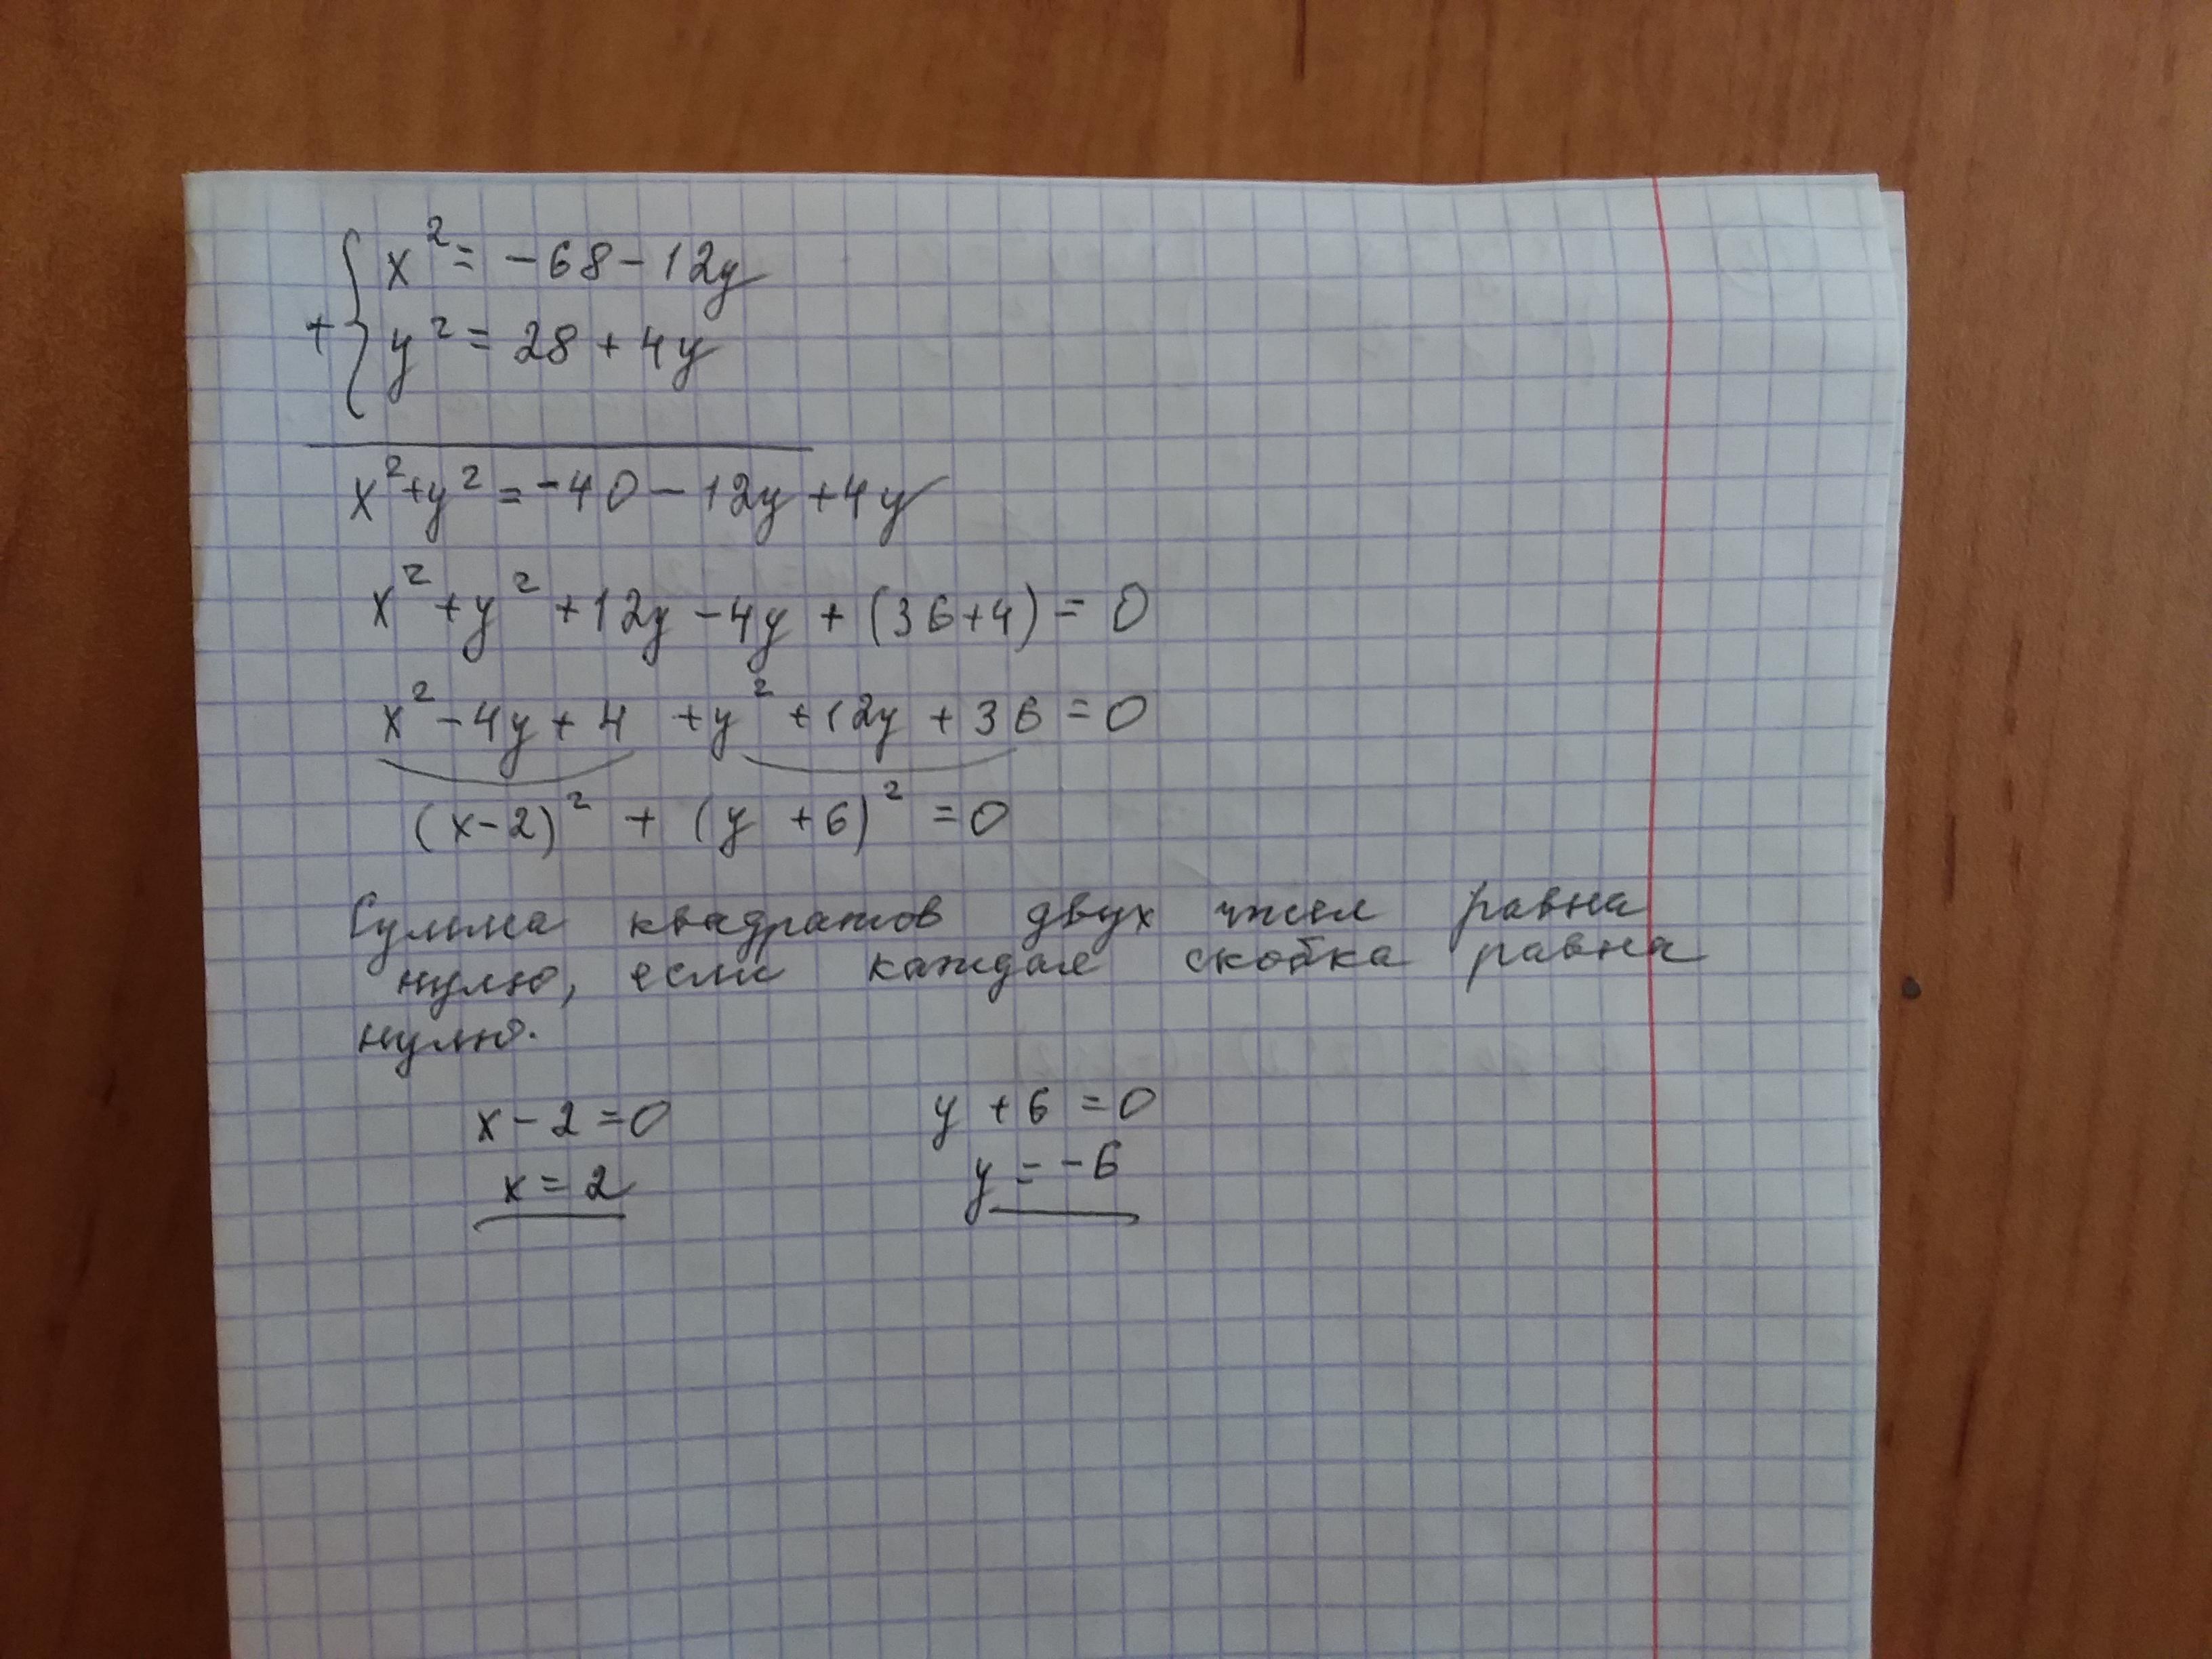 + { x² = -68 - 12y
y² = 28 + 4y
x² + y² = -40 - 12y + 4y
x² + y² + 12y - 4y + (36 + 4) = 0
x² - 4y + 4 + y² + 12y + 36 = 0
(x - 2)² + (y + 6)² = 0
Сумма квадратов двух чисел равна
нулю, если каждая скобка равна
нулю.
x - 2 = 0 y + 6 = 0
x = 2 y = -6